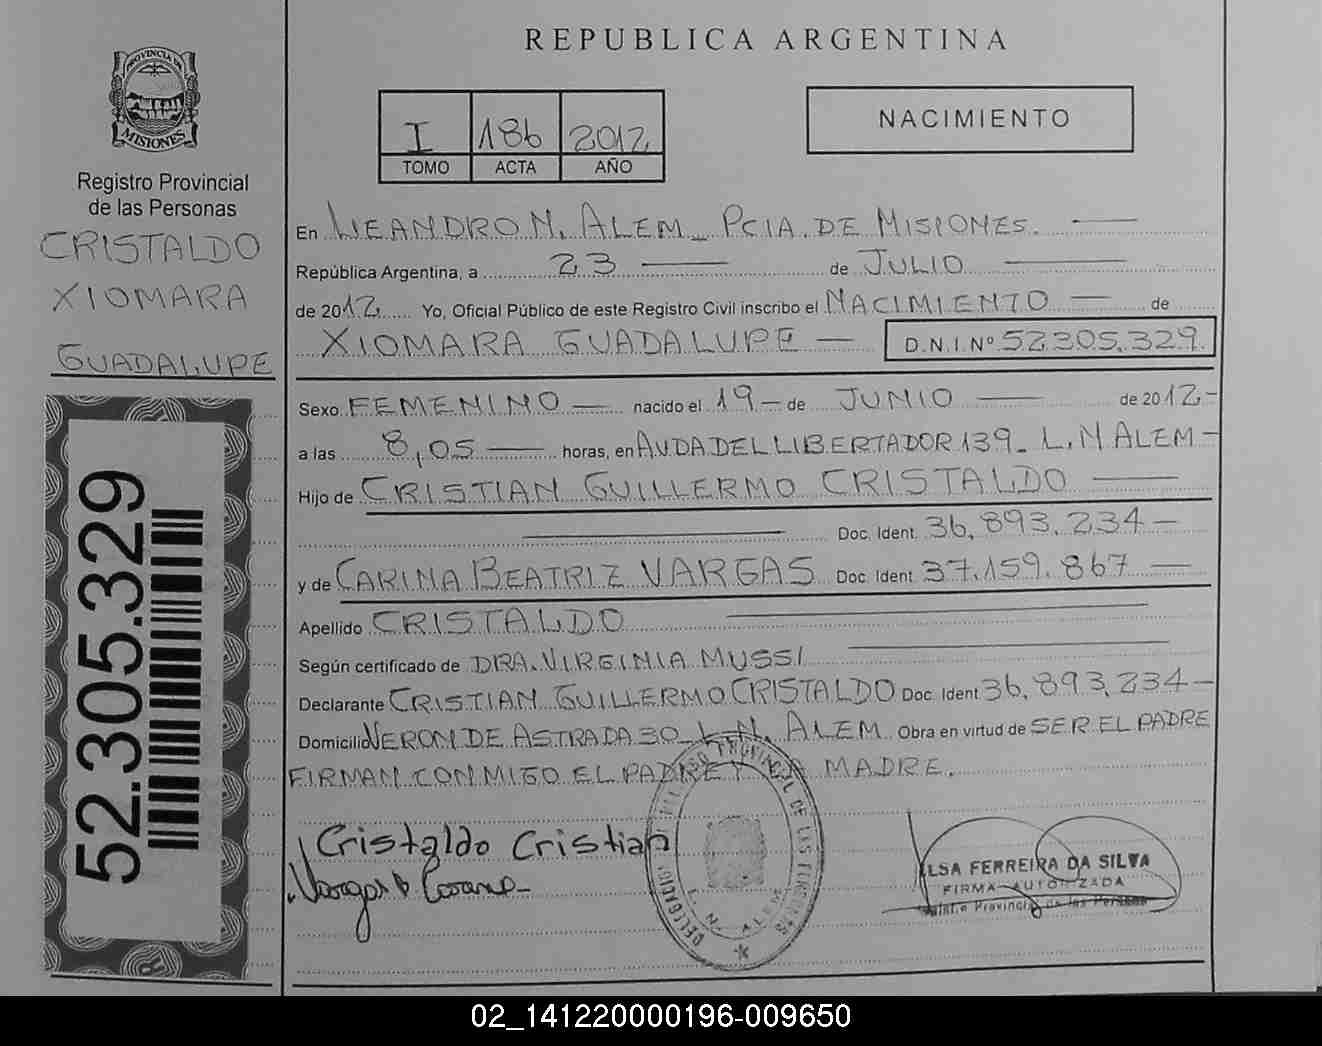 PROVINCIA DE
MISIONES
Registro Provincial
de las Personas
CRISTALDO
XIOMARA
GUADALUPE
52.305.329
REPUBLICA ARGENTINA
I 186 2012
TOMO ACTA AÑO
NACIMIENTO
En LEANDRO N. ALEM_ PCIA. DE MISIONES.
República Argentina, a 23 de JULIO
de 2012 Yo, Oficial Público de este Registro Civil inscribo el NACIMIENTO de
XIOMARA GUADALUPE — D.N.I.Nº 52.305.329.
Sexo FEMENINO — nacido el 19 - de JUNIO — de 2012-
a las 8,05 — horas, en AVDA DEL LIBERTADOR 139_ L.N ALEM -
Hijo de CRISTIAN GUILLERMO CRISTALDO —
Doc. Ident. 36.893.234 —
y de CARINA BEATRIZ VARGAS Doc. Ident 37.159.867 —
Apellido CRISTALDO
Según certificado de DRA. VIRGINIA MUSSI
Declarante CRISTIAN GUILLERMO CRISTALDO Doc. Ident 36.893.234 —
Domicilio VERON DE ASTRADA 30_ L.N. ALEM Obra en virtud de SER EL PADRE
FIRMAN CONMIGO EL PADRE Y LA MADRE.
Cristaldo Cristian
Vargas
DELEGACION PROVINCIAL DE LAS PERSONAS
L. N. ALEM
ILSA FERREIRA DA SILVA
FIRMA AUTORIZADA
Provincial de las Personas
02_141220000196-009650